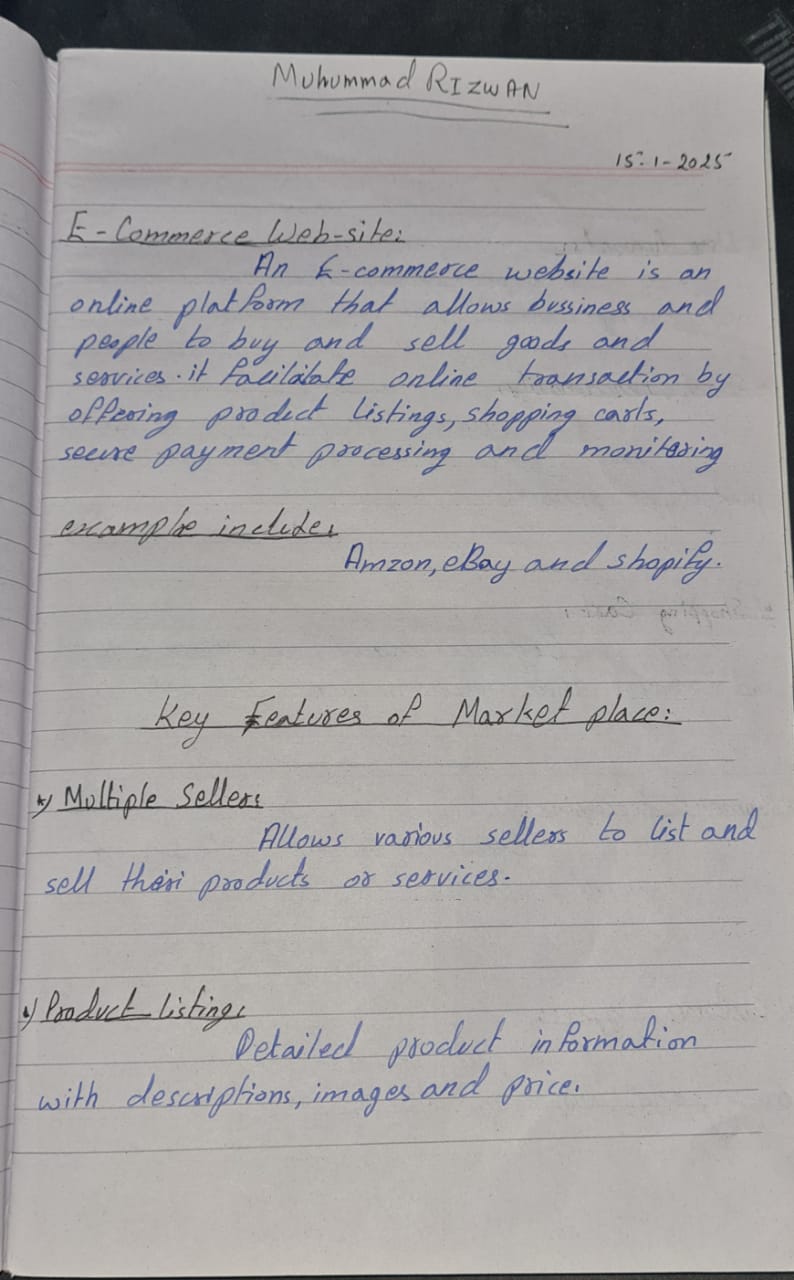 Muhummad RIZWAN
15-1-2025
E-Commerce Web-site:
An E-commerce website is an
online platform that allows bussiness and
people to buy and sell goods and
services. it facilitate online transaction by
offering product listings, shopping carts,
secure payment processing and monitoring
example include:
Amzon, eBay and shopify.
Key Features of Market place:
*) Multiple Sellers
Allows various sellers to list and
sell their products or services.
*) Product listing:
Detailed product information
with descriptions, images and price.